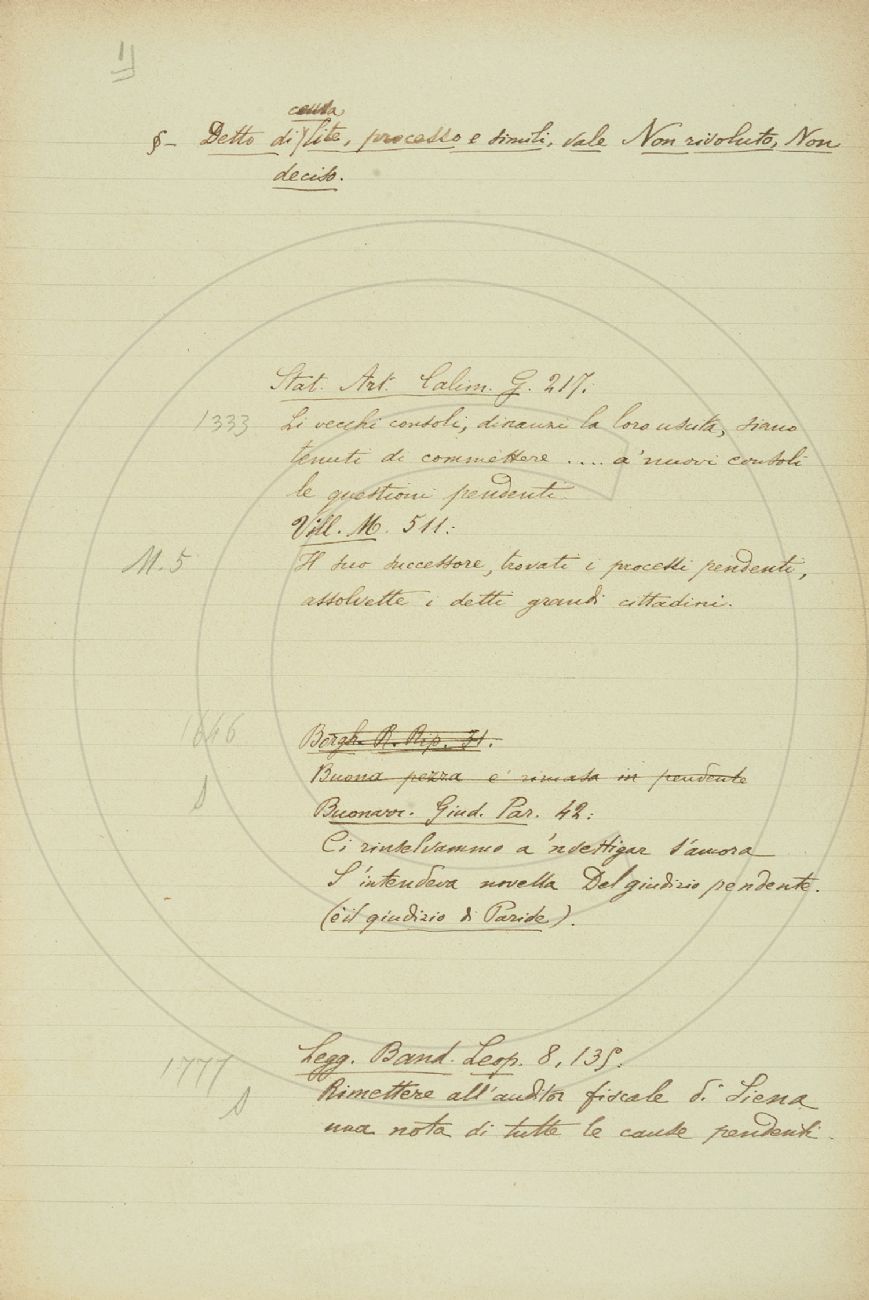 §– Detto di causa, lite, processo e simili, vale Non risoluto, Non
deciso.
Stat. Art. Calim. G. 217:
1333 Li vecchi consoli, dinanzi la loro uscita, siano
tenuti di commettere .... a' nuovi consoli
le questioni pendenti.
Vill. M. 511:
M. 5 Il suo successore, trovati i processi pendenti,
assolvette i detti grandi cittadini.
1646 Borgh. R. Rip. 31.
Buona pezza è rimasa in pendente
Buonarr. Giud. Par. 42:
Ci rinselvammo a 'nvestigar s'ancora
S'intendeva novella Del giudizio pendente.
(è il giudizio di Paride).
1777 Legg. Band. Leop. 8, 135.
Rimettere all'auditor fiscale di Siena
una nota di tutte le cause pendenti.